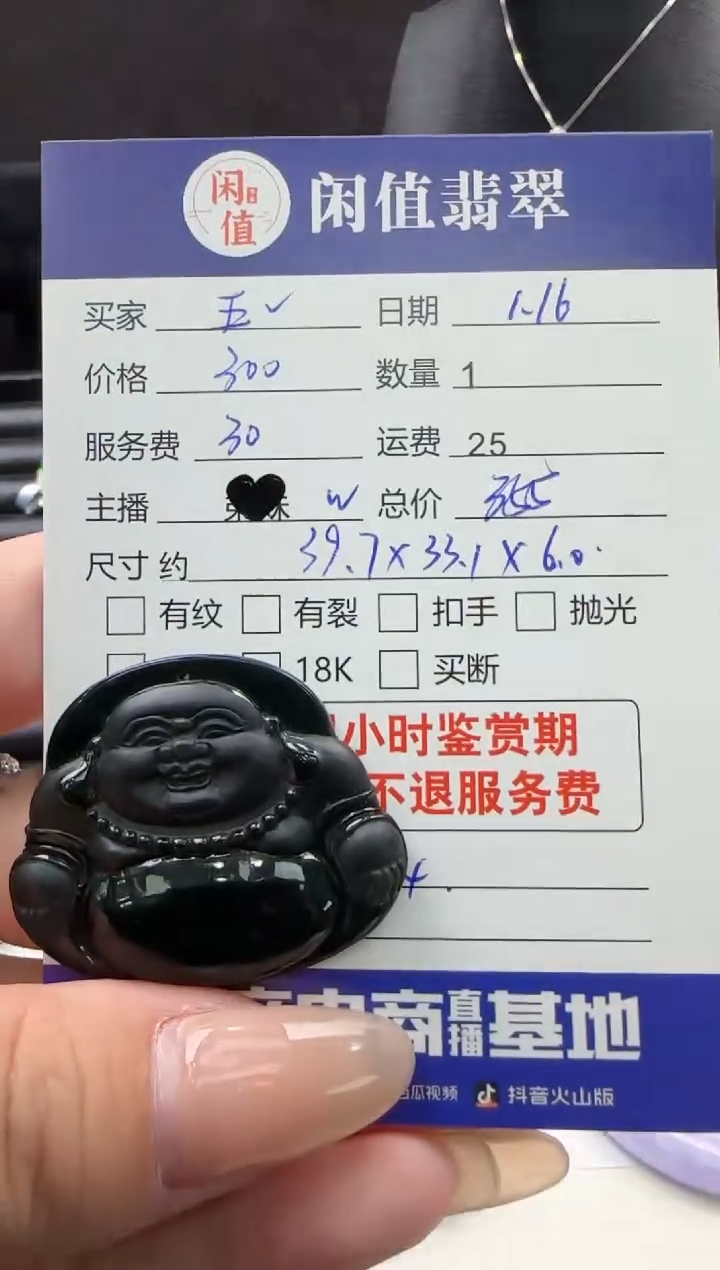 闲值 闲值翡翠
买家 五✓ 日期 1-16
价格 300 数量 1
服务费 30 运费 25
主播 W 总价 355
尺寸 约 39.7×33.1×6.0
有纹 有裂 扣手 抛光
18K 买断
小时鉴赏期
不退服务费
电商直播基地
瓜视频 抖音火山版